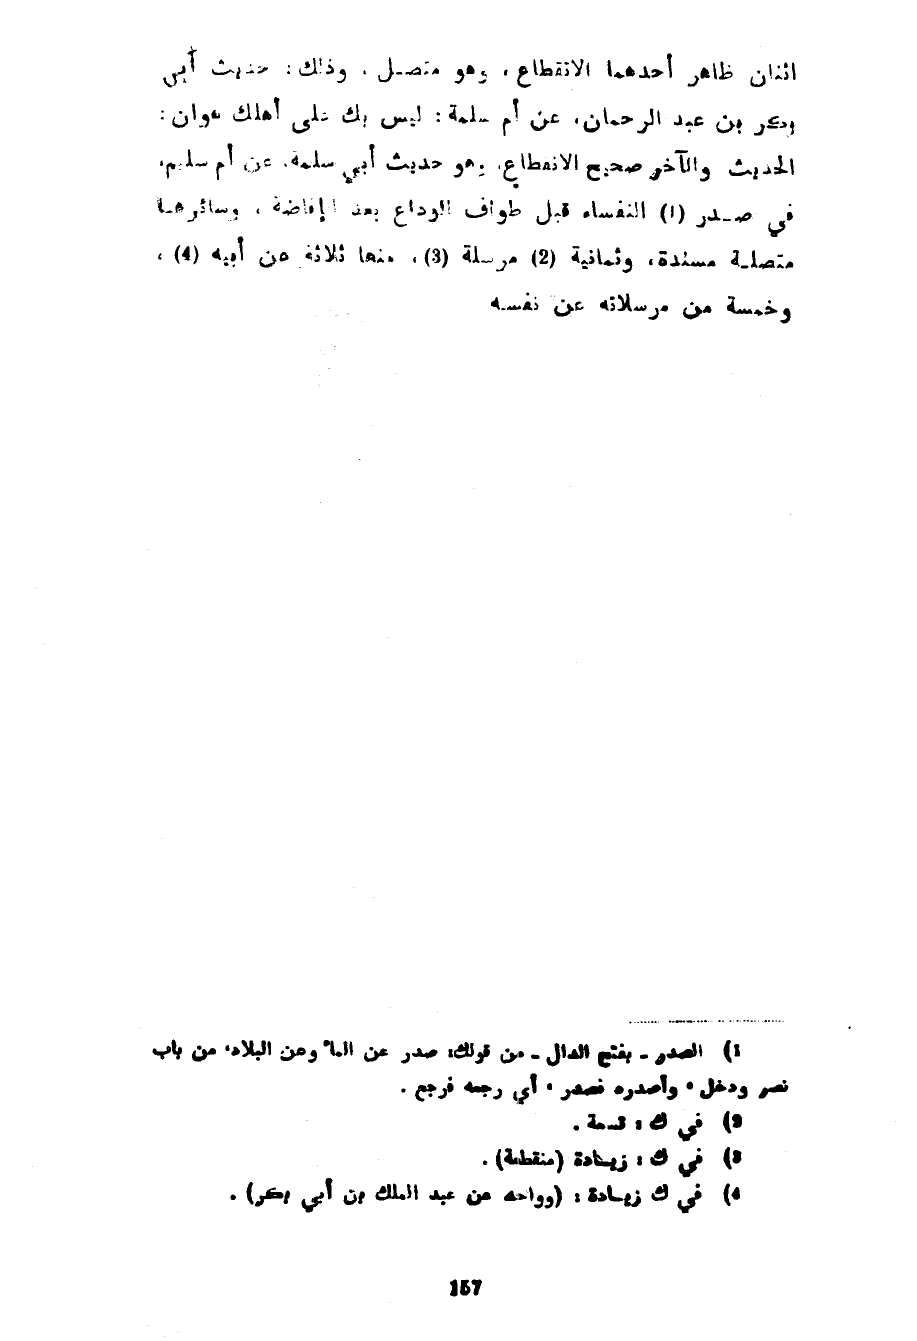 اثنان ظاهر أحدهما الانقطاع ، وهو متصل . وذلك : حديث أبي
بكر بن عبد الرحمان، عن أم سلمة : ليس بك على أهلك هوان :
الحديث والآخر صحيح الانقطاع. وهو حديث أبي سلمة. عن أم سليم،
في صدر (1) النفساء قبل طواف الوداع بعد الإفاضة ، وسائرها
متصلة مسندة، وثمانية (2) مرسلة (3) ، منها ثلاثة عن أبيه (4) ،
وخمسة من مرسلاته عن نفسه
1) الصدر ـ بفتح الدال ـ من قولك: صدر عن الماء وعن البلاد، من باب
نصر ودخل ، وأصدره فصدر ، أي رجعه فرجع .
2) في ك : تسعة .
3) في ك : زيادة (منقطعة) .
4) في ك زيادة : (وواحد عن عبد الملك بن أبي بكر) .
157